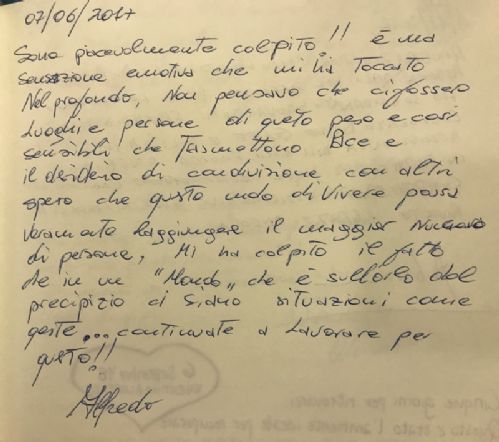 07/06/2017
Sono piacevolmente colpito!! è una
sensazione emotiva che mi ha Toccato
Nel profondo, Non pensavo che ci fossero
Luoghi e persone di questo peso e così
sensibili che Trasmettono Pace e
il desiderio di condivisione con altri
spero che questo modo di Vivere possa
veramente Raggiungere il maggior Numero
di persone, Mi ha colpito il fatto
che in un "Mondo" che è sull'orlo del
precipizio ci siano situazioni come
queste... continuate a Lavorare per
questo!!
Alfredo